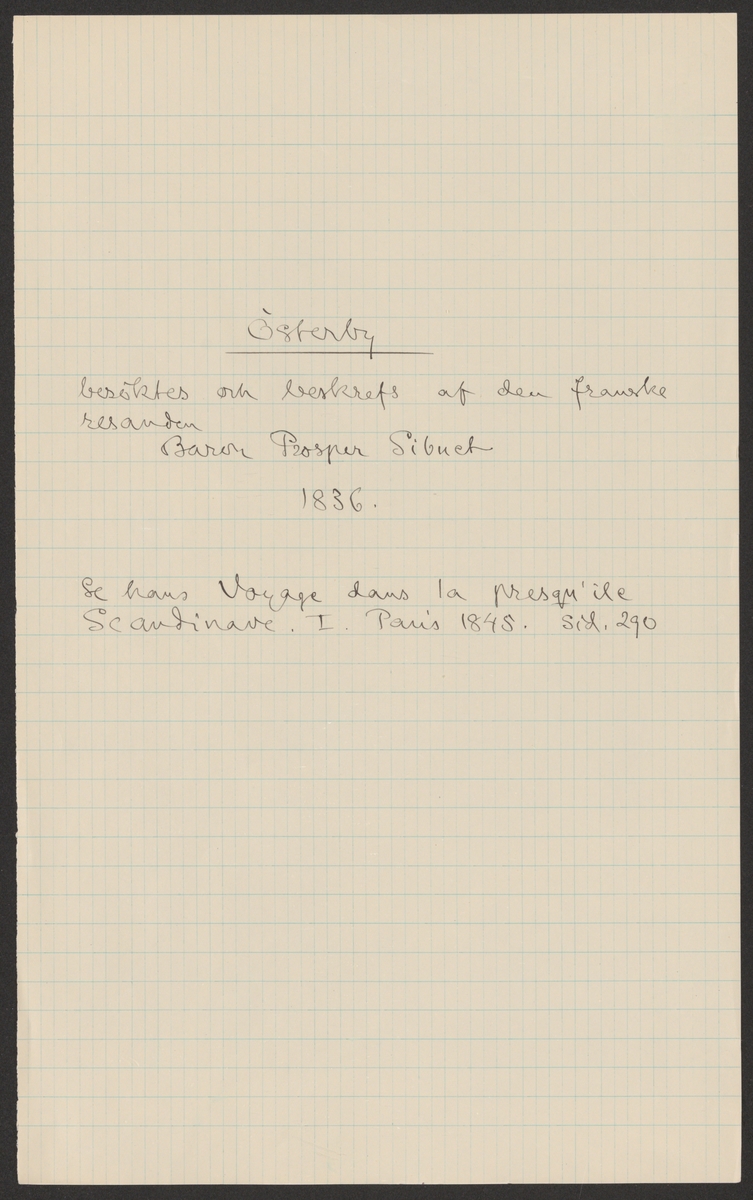 Österby
besöktes och beskrefs af den franske
resanden
Baron Prosper Sibuet
1836.
Se hans Voyage dans la presqu'ile
Scandinave. I. Paris 1848. Sid. 290